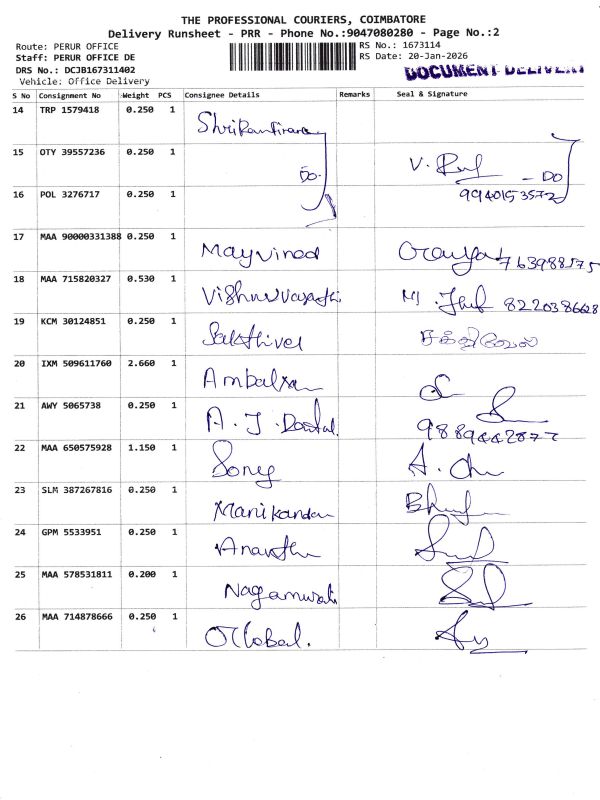 THE PROFESSIONAL COURIERS, COIMBATORE
Delivery Runsheet - PRR - Phone No.:9047080280 - Page No.:2
Route: PERUR OFFICE RS No.: 1673114
Staff: PERUR OFFICE DE RS Date: 20-Jan-2026
DRS No.: DCJB167311402 DOCUMENT
Vehicle: Office Delivery
S No Consignment No Weight PCS Consignee Details Remarks Seal & Signature
14 TRP 1579418 0.250 1
15 OTY 39557236 0.250 1 DO V. - DO
16 POL 3276717 0.250 1 9940153572
17 MAA 90000331388 0.250 1 Mayvinod 763988575
18 MAA 715820327 0.530 1 8220386628
19 KCM 30124851 0.250 1 Sakthivel சக்திவேல்
20 IXM 509611760 2.660 1
21 AWY 5065738 0.250 1 A. J. Dental.
9889442877
22 MAA 650575928 1.150 1 Sony
23 SLM 387267816 0.250 1 Manikandan
24 GPM 5533951 0.250 1
25 MAA 578531811 0.200 1
26 MAA 714878666 0.250 1